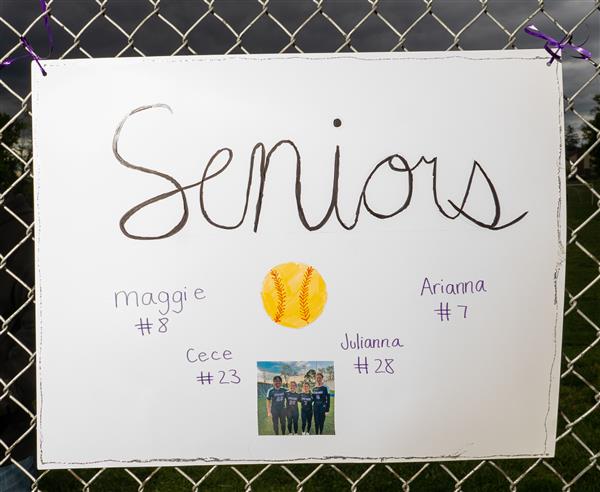 Seniors
maggie
#8
Arianna
#7
Cece
#23
Julianna
#28